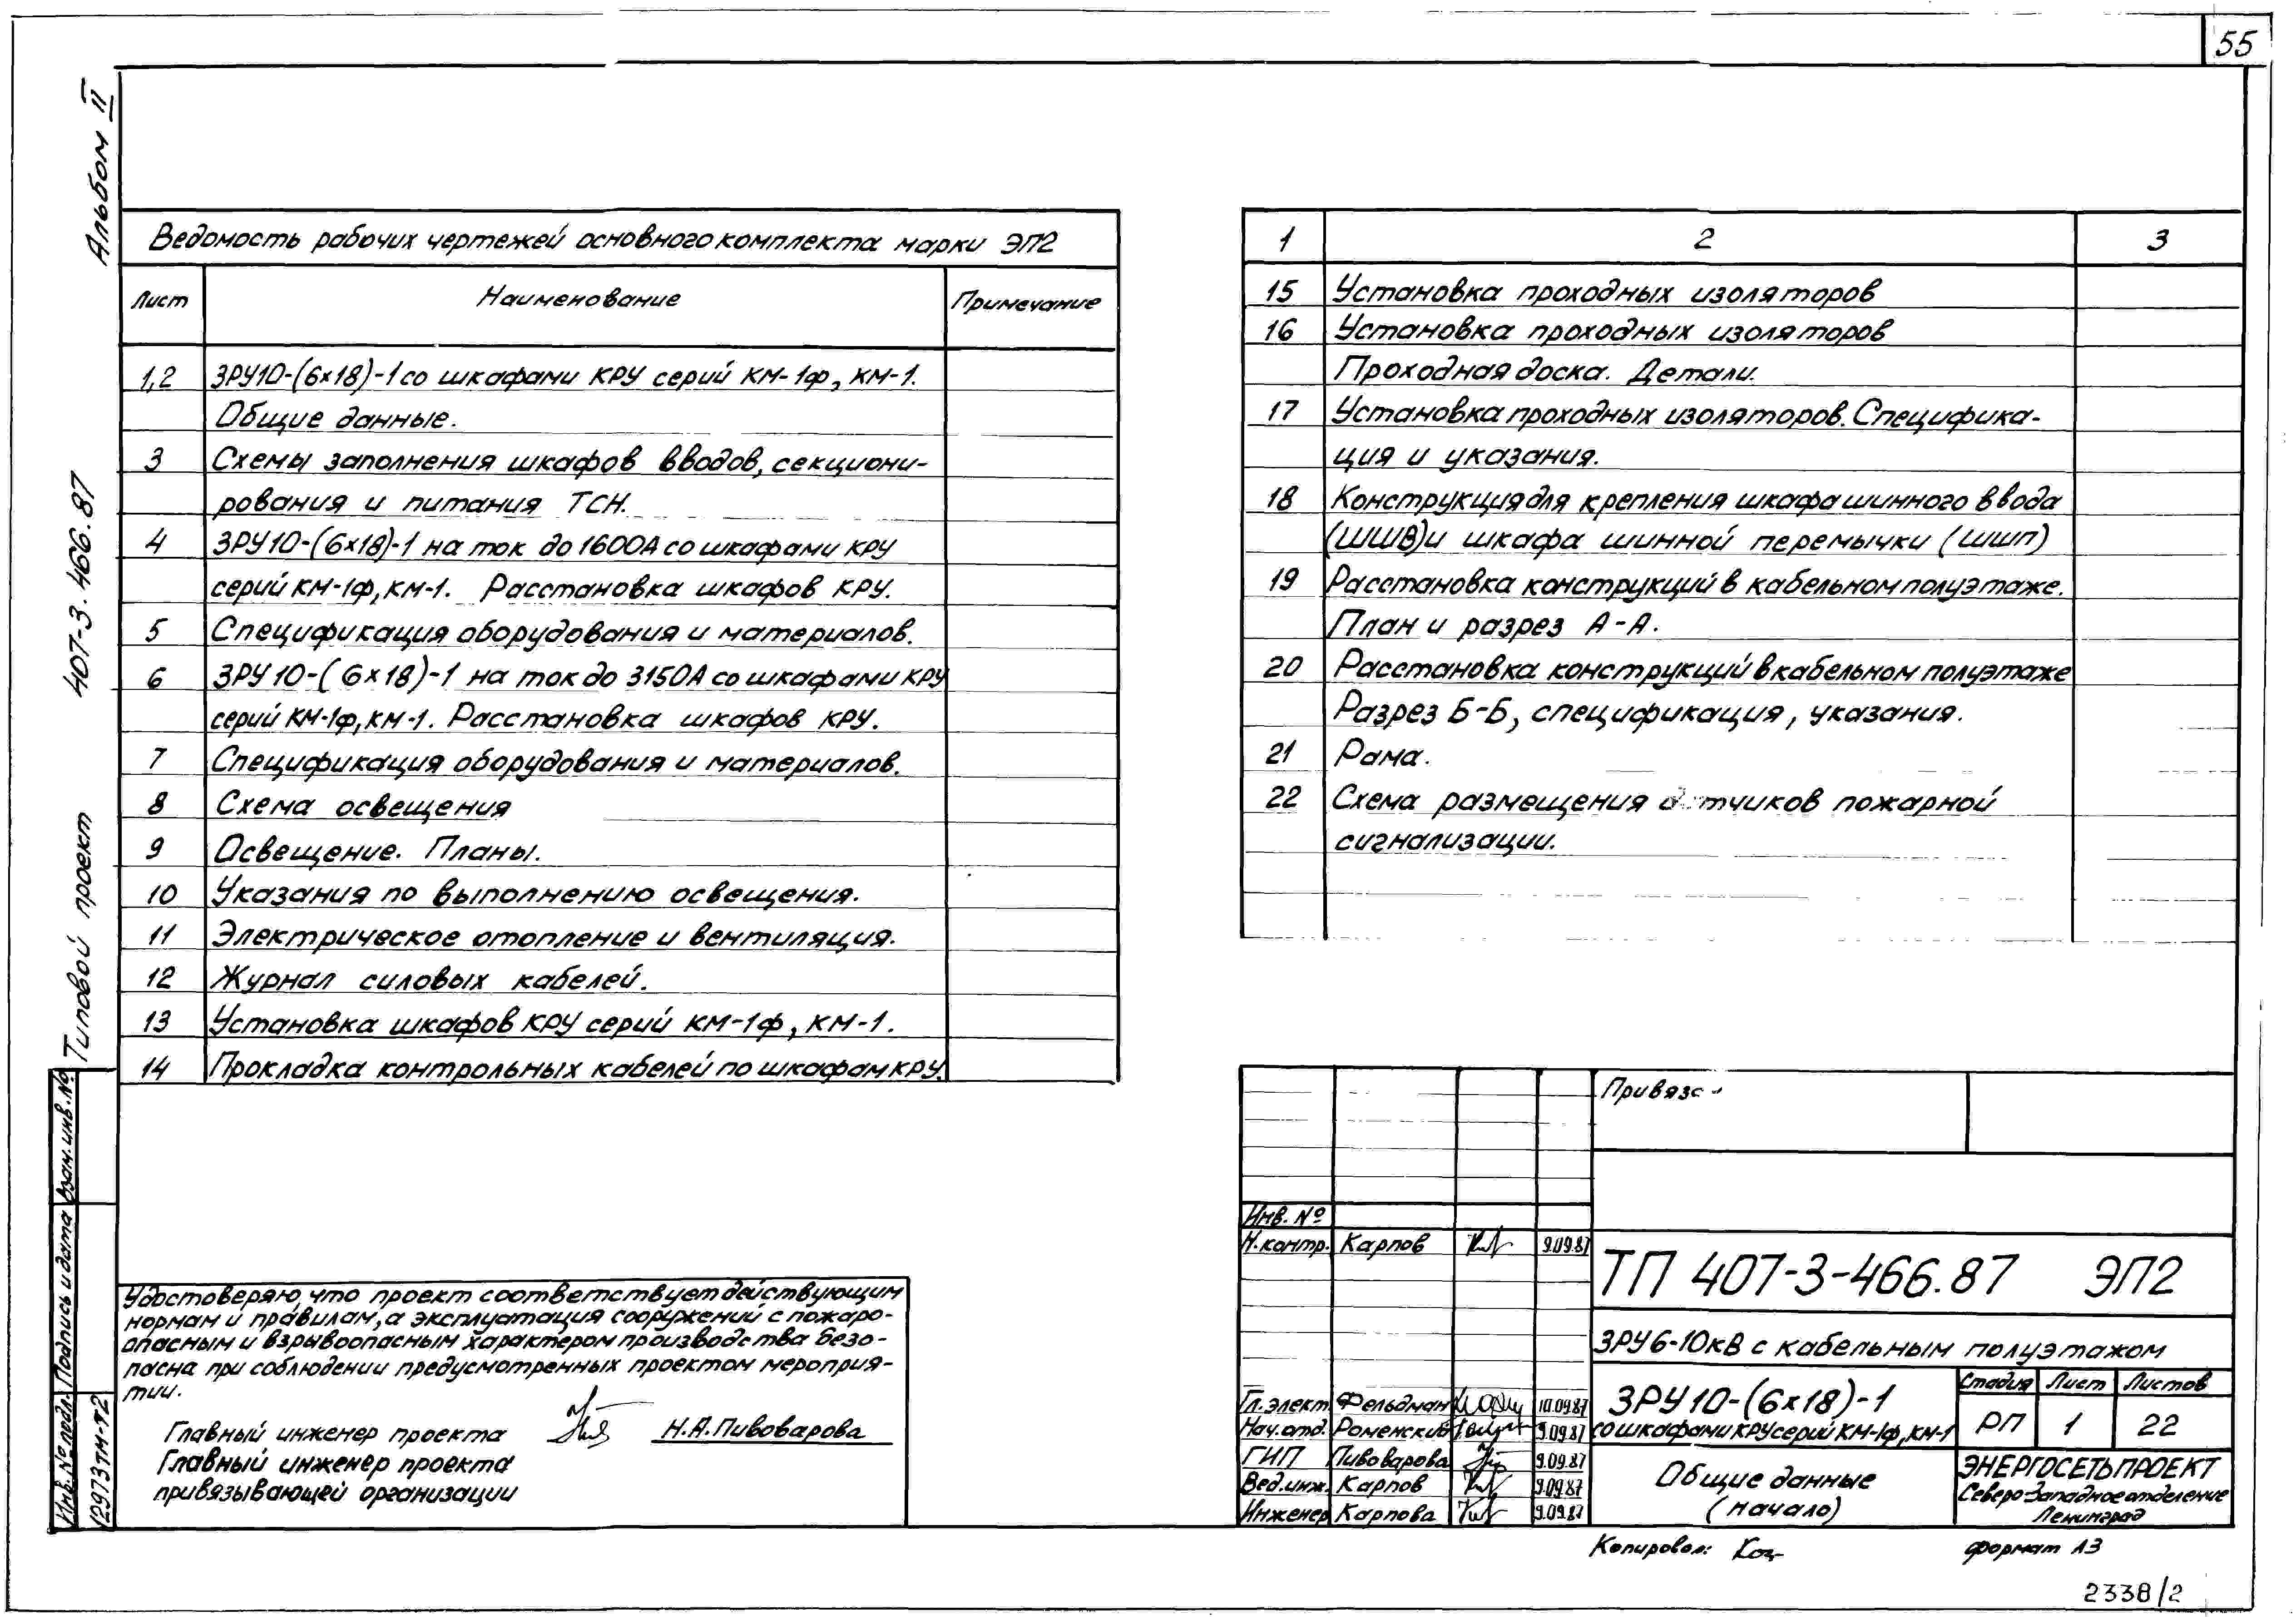 55
Альбом II
407-3.466.87
Типовой проект
Ведомость рабочих чертежей основного комплекта марки ЭП2
Лист Наименование Примечание
1,2 ЗРУ10-(6×18)-1 со шкафами КРУ серий КМ-1Ф, КМ-1.
Общие данные.
3 Схемы заполнения шкафов вводов, секциони-
рования и питания ТСН.
4 ЗРУ10-(6×18)-1 на ток до 1600А со шкафами КРУ
серий КМ-1ф, КМ-1. Расстановка шкафов КРУ.
5 Спецификация оборудования и материалов.
6 ЗРУ10-(6×18)-1 на ток до 3150А со шкафами КРУ
серий КМ-1ф, КМ-1. Расстановка шкафов КРУ.
7 Спецификация оборудования и материалов.
8 Схема освещения
9 Освещение. Планы.
10 Указания по выполнению освещения.
11 Электрическое отопление и вентиляция.
12 Журнал силовых кабелей.
13 Установка шкафов КРУ серий КМ-1ф, КМ-1.
14 Прокладка контрольных кабелей по шкафам КРУ.
1 2 3
15 Установка проходных изоляторов
16 Установка проходных изоляторов
Проходная доска. Детали.
17 Установка проходных изоляторов. Специфика-
ция и указания.
18 Конструкция для крепления шкафа шинного ввода
(ШШВ) и шкафа шинной перемычки (ШШП)
19 Расстановка конструкций в кабельном полуэтаже.
План и разрез А-А.
20 Расстановка конструкций в кабельном полуэтаже
Разрез Б-Б, спецификация, указания.
21 Рама.
22 Схема размещения датчиков пожарной
сигнализации.
Взам. инв. №
Подпись и дата
Инв. № подл.
12973тм-т2
Удостоверяю, что проект соответствует действующим
нормам и правилам, а эксплуатация сооружений с пожаро-
опасным и взрывоопасным характером производства безо-
пасна при соблюдении предусмотренных проектом мероприя-
тии.
Главный инженер проекта Н.А.Пивоварова
Главный инженер проекта
привязывающей организации
Привяза
Инв. №
Н.контр. Карпов 9.09.87
ТП 407-3-466.87 ЭП2
ЗРУ6-10кВ с кабельным полуэтажом
Гл.элект. Фельдман 10.09.87
Нач.отд. Роменский 9.09.87
ГИП Пивоварова 9.09.87
Вед.инж. Карпов 9.09.87
Инженер Карпова 9.09.87
ЗРУ10-(6×18)-1
со шкафами КРУ серий КМ-1ф, КМ-1
Стадия Лист Листов
РП 1 22
Общие данные
(начало)
ЭНЕРГОСЕТЬПРОЕКТ
Северо-Западное отделение
Ленинград
Копировал: формат А3
2338/2